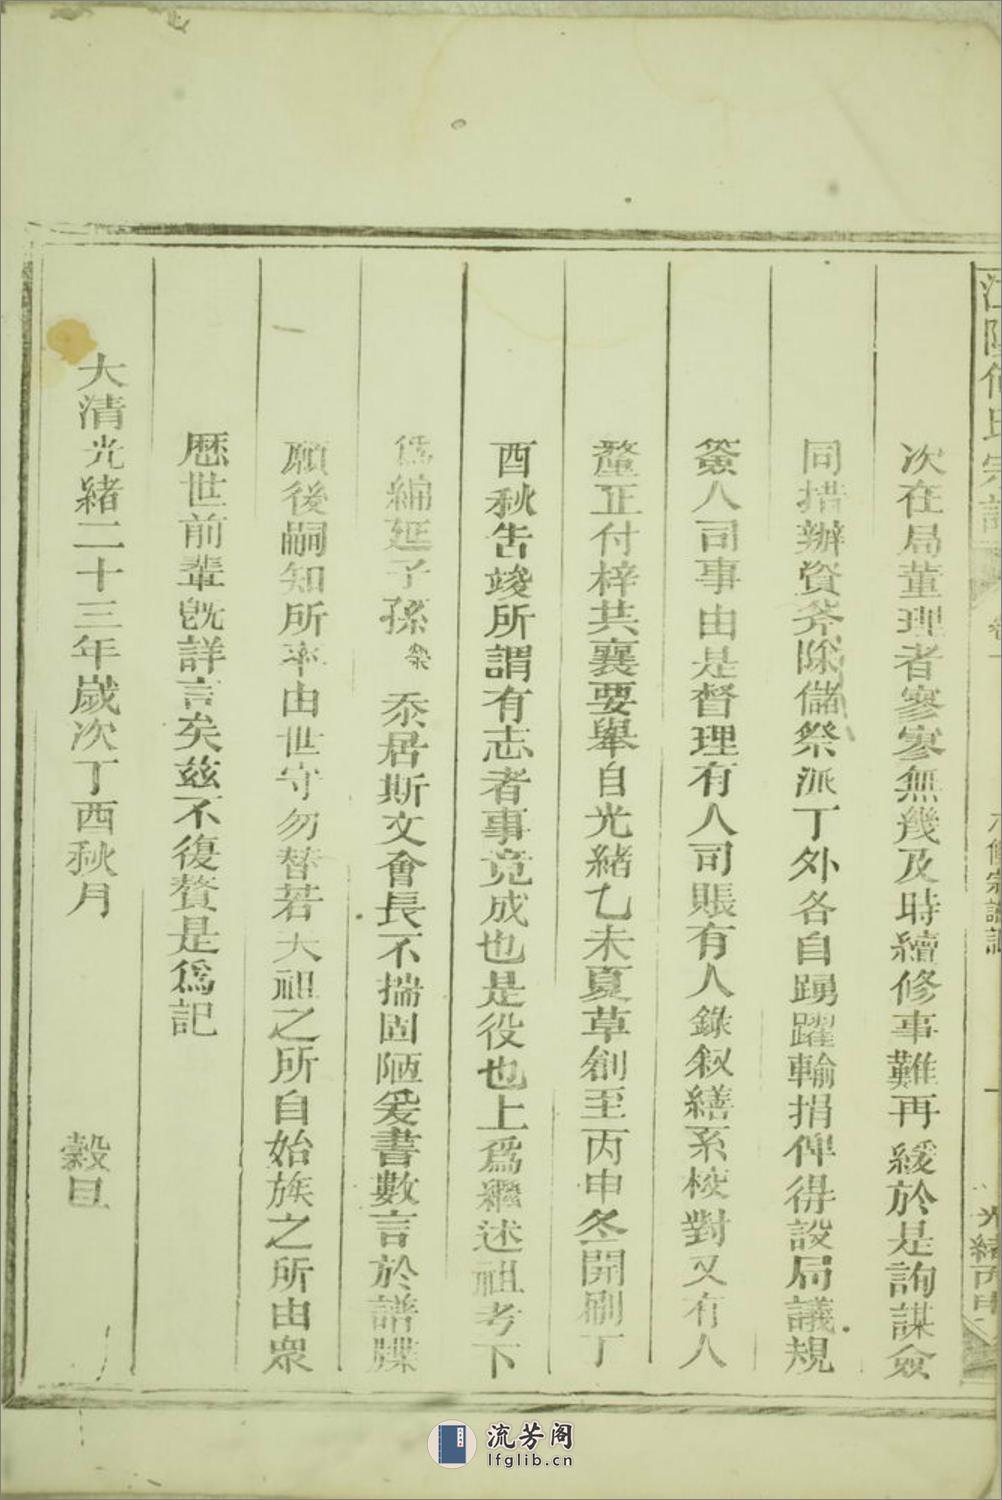 宗
六修宗譜記
光緒丙申
次在局董理者寥寥無幾及時續修事難再緩於是詢謀僉
同措辦資斧除儲祭派丁外各自踴躍輸捐俾得設局議規
簽人司事由是督理有人司賬有人錄叙繕系校對又有人
釐正付梓共襄要舉自光緒乙未夏草創至丙申冬開刷丁
酉秋告竣所謂有志者事竟成也是役也上爲繼述祖考下
爲綿延子孫 忝居斯文會長不揣固陋爰書數言於譜牒
願後嗣知所率由世守勿替若大祖之所自始族之所由衆
歷世前輩旣詳言矣茲不復贅是爲記
大清光緒二十三年歲次丁酉秋月 穀旦
流芳阁
lfglib.cn